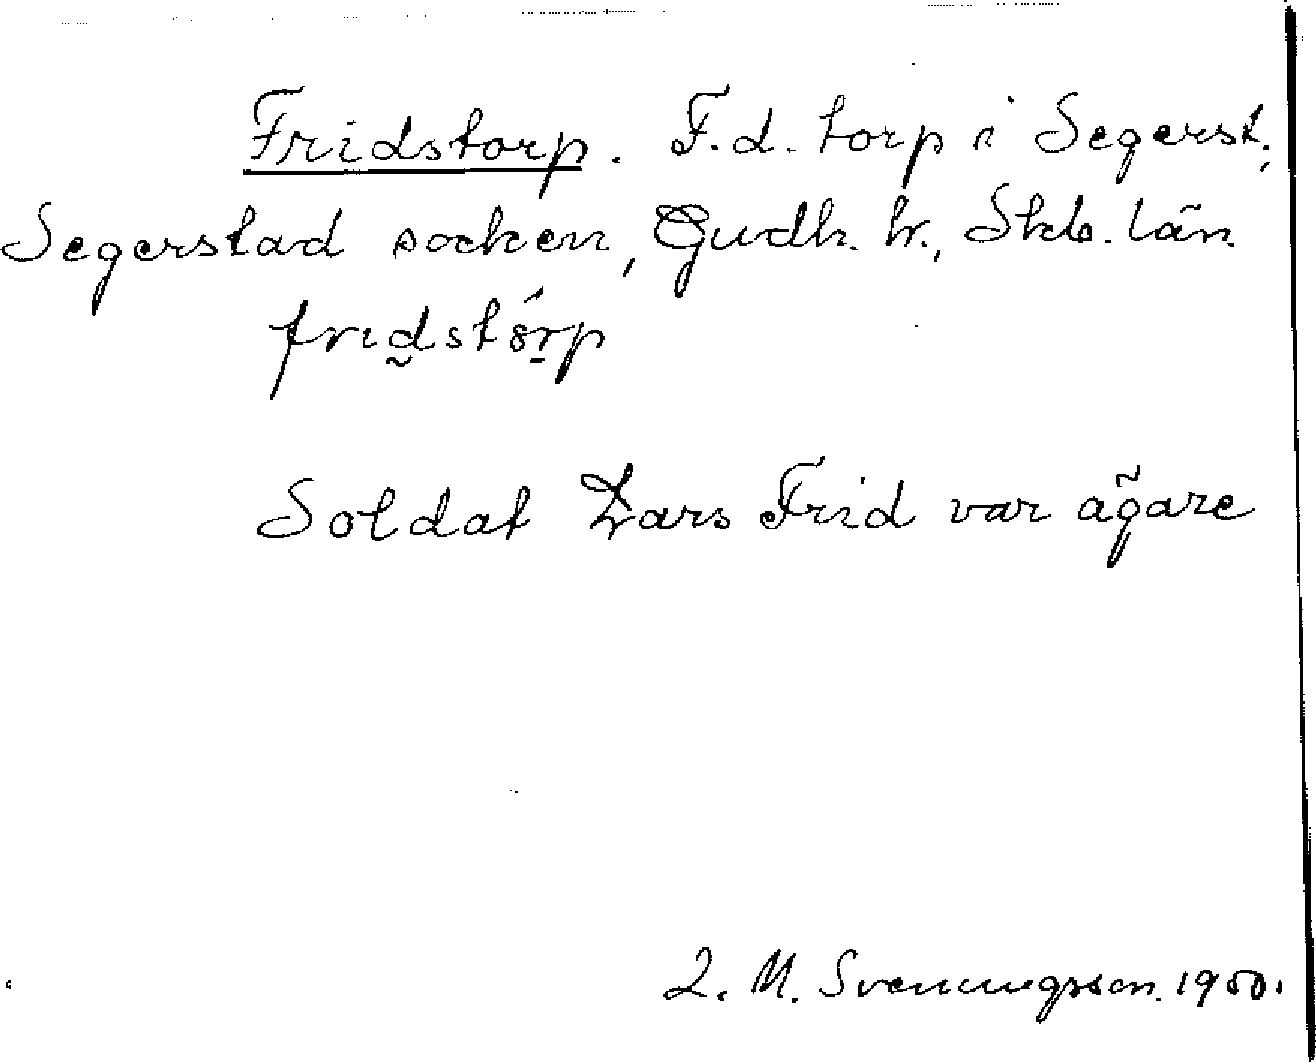 Fridstorp. F.d. torp i Segerst.,
Segerstad socken, Gudh. hr., Skb. län
fridstȯ́rp
Soldat Lars Frid var ägare
L. M. Svenningsson. 1950.